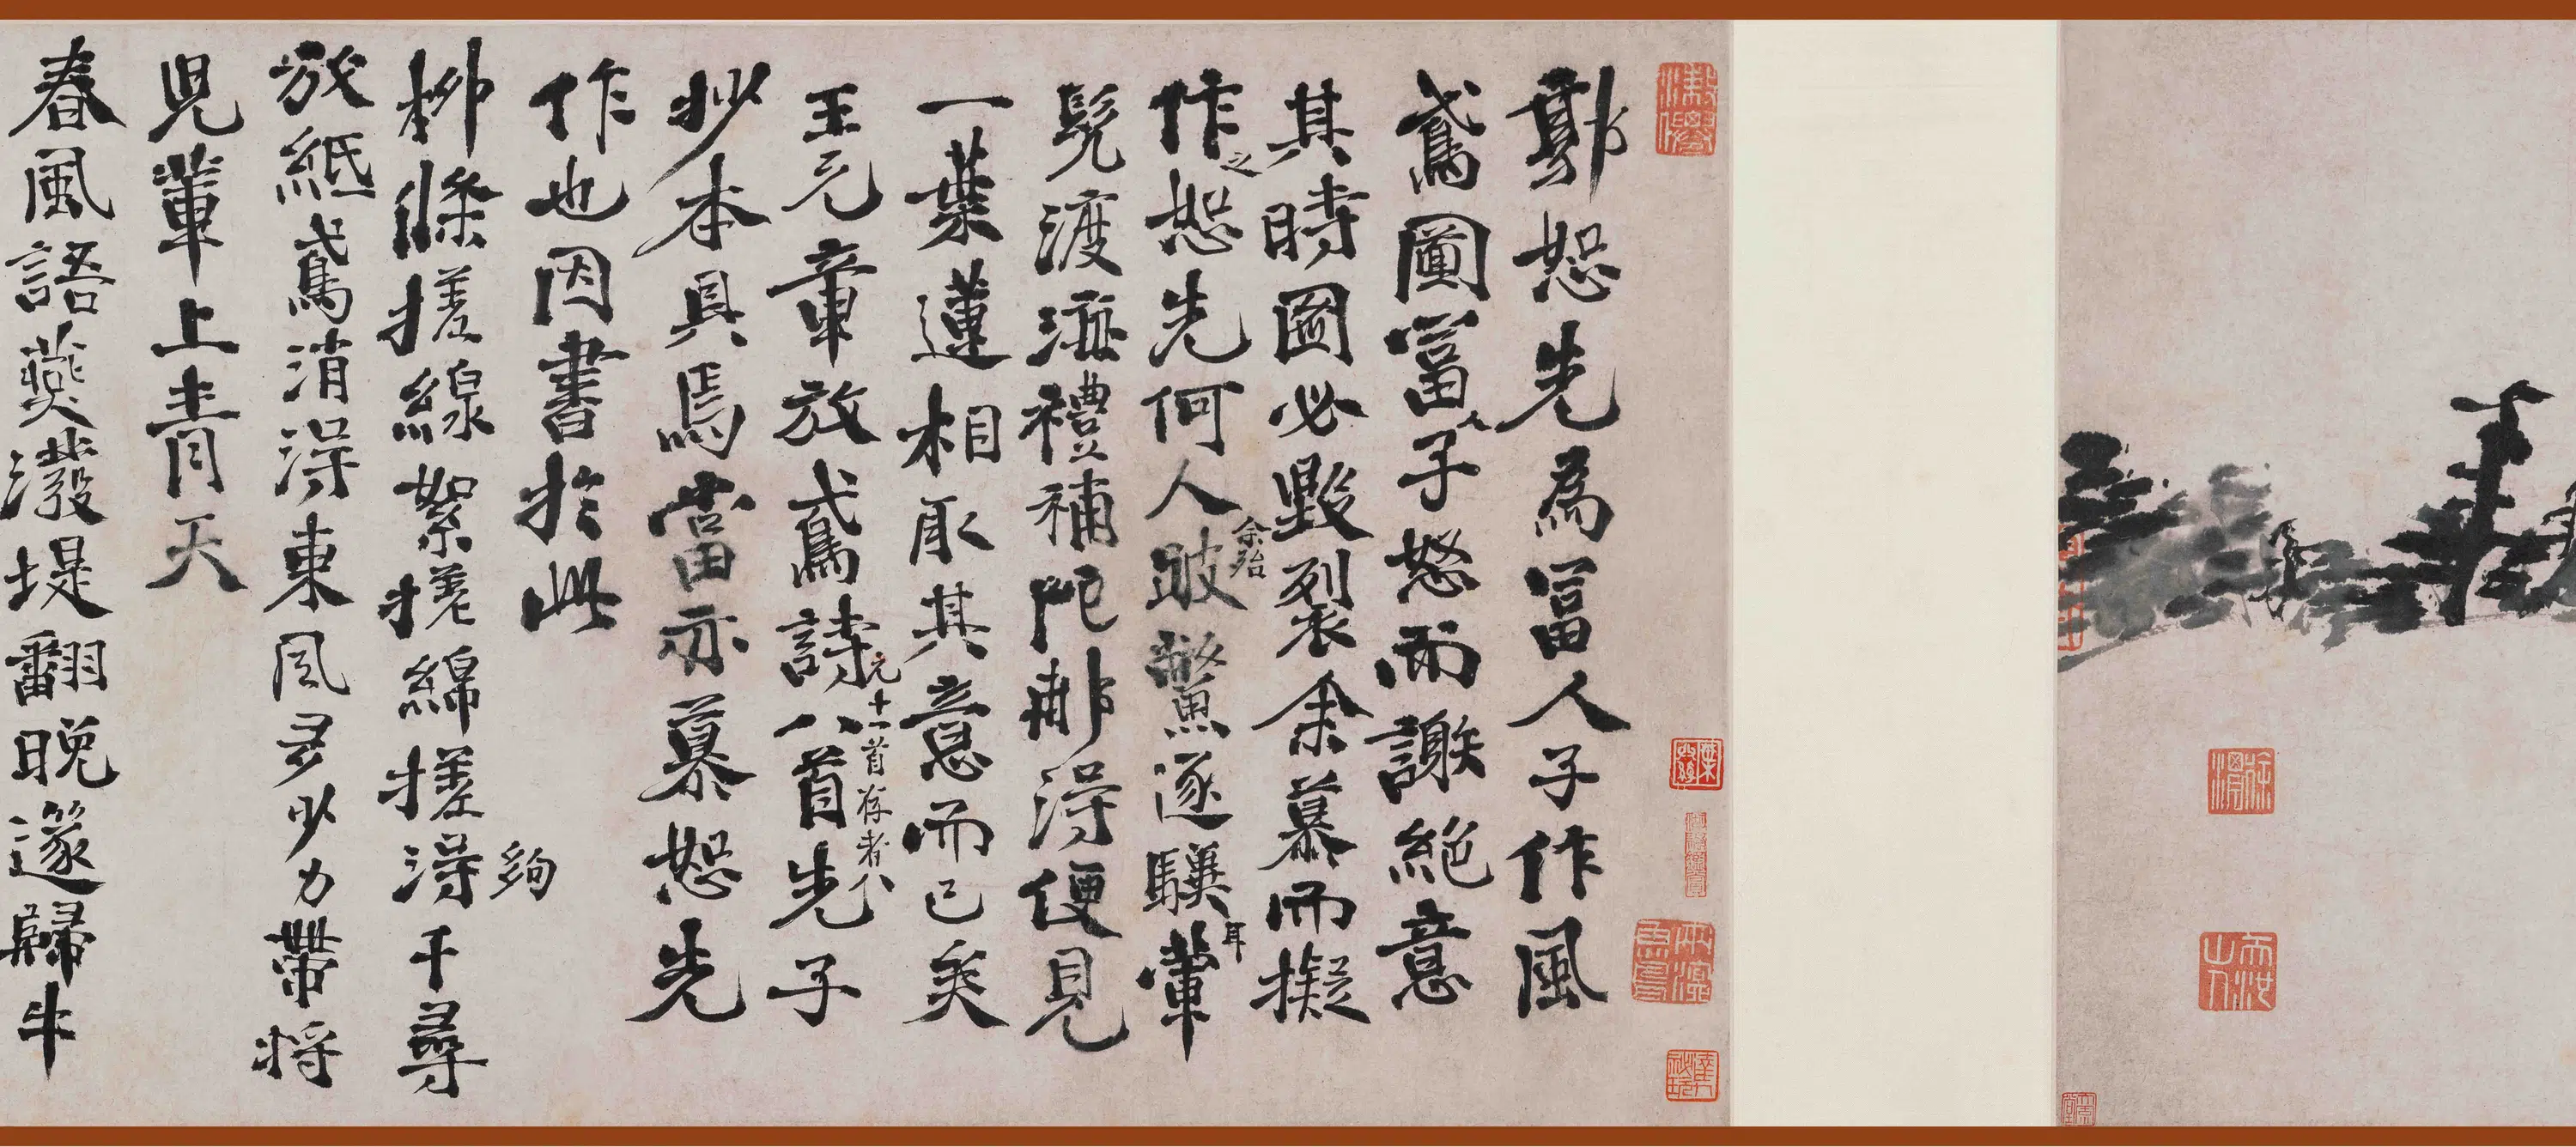 徐渭
天池山人
郭恕先為冨人子作風
鳶圖冨人子怒而謝絕意
其時圖必毀裂余慕而擬
作之恕先何人余殆跛鱉逐驥耳輩
髡渡海禮補陀那得便見
一葉蓮相取其意而已矣
王元章放鳶詩元十一首存者八八首先子
抄本具焉當亦慕恕先
作也因書於此
夠
柳條搓線絮搓綿搓得千尋
放紙鳶消得東風多少力帶將
兒輩上青天
春風語燕潑堤翻晚篴歸牛